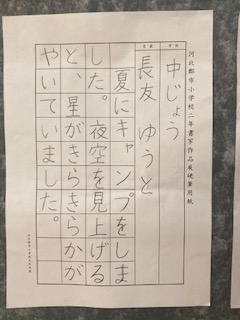 河北郡市小学校二年書写作品展硬筆用紙
中じょう
長友 ゆうと
夏にキャンプをしま
した。夜空を見上げる
と、星がきらきらかが
やいていました。